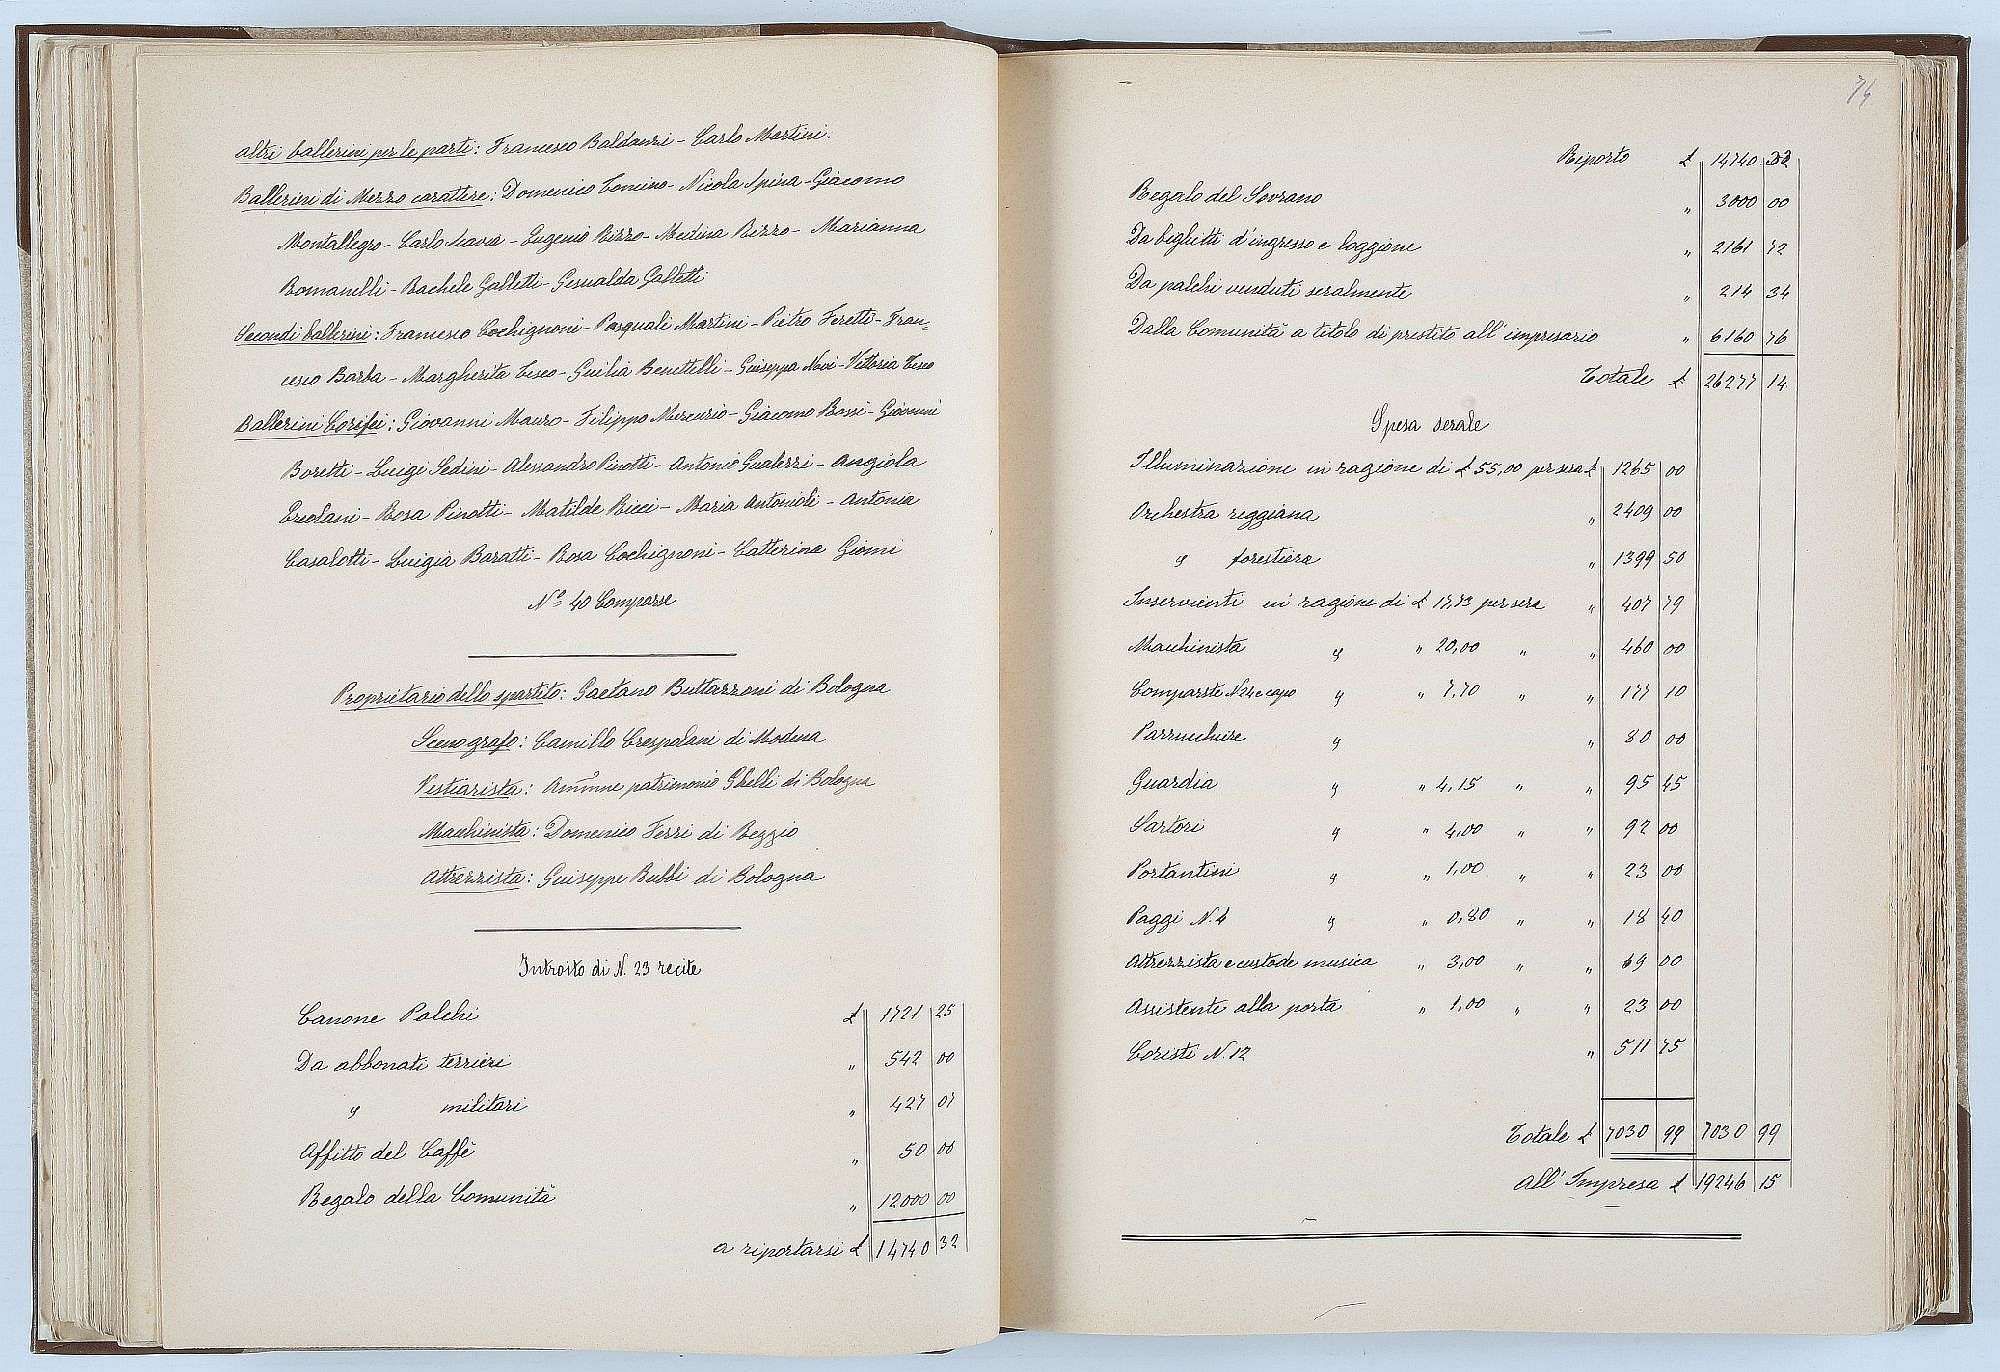 altri ballerini per le parti: Francesco Baldanzi - Carlo Martini.
Ballerini di Mezzo carattere: Domenico Tomino - Nicola Spina - Giacomo
Montallegro - Carlo - Eugenio Rizzo - Metina Rizzo - Marianna
Romanelli - Rachele Galletti - Gesualda Galletti
Secondi ballerini: Francesco Cochignoni - Pasquali Martini - Pietro Feretti - Fran=
cesco Barba - Margherita Tesco - Guilia Benettelli - Guiseppa Novi - Vittoria Tesco
Ballerini Corifei: Giovanni Mauro - Filippo Mercurio - Giacomo Bossi - Giovanni
Boretti - Luigi Sedini - Alessandro Pinotti - Antonio Gualezzi - Angiola
Ercolani - Rosa Pinotti - Matilde Ricci - Maria Antonioli - Antonia
Casalotti - Luigia Baratti - Rosa Cochignoni - Catterina Giomi
Nº 40 Comparse
Proprietario dello spartito: Gaetano Buttazzoni di Bologna
Scenografo: Camillo Crespolani di Modena
Vestiarista: Amm̃ne patrimonio Ghelli di Bologna
Macchinista: Domenico Ferri di Reggio
Attrezzista: Guiseppe Bubbi di Bologna
Introito di N. 23 recite
Canone Palchi £ 1721 25
Da abbonati terrieri " 542 00
" militari " 427 07
Affitto del Caffè " 50 00
Regalo della Comunità " 12000 00
a riportarsi £ 14740 32
74
Riporto £ 14740 32
Regalo del Sovrano " 3000 00
Da biglietti d'ingresso e loggione " 2161 72
Da palchi venduti seralmente " 214 34
Dalla Comunità a titolo di prestito all'impresario " 6160 76
Totale £ 26277 14
Spesa serale
Illuminazione in ragione di £ 55,00 per sera £ 1265 00
Orchestra reggiana " 2409 00
" forestiera " 1399 50
Inservienti in ragione di £ 17,73 per sera " 407 79
Macchinista " " 20,00 " " 460 00
Comparste N. 24 e capo " " 7,70 " " 177 10
Parrucchiere " " 80 00
Guardia " " 4,15 " " 95 45
Sartori " " 4,00 " " 92 00
Portantini " " 1,00 " " 23 00
Paggi N. 4 " " 0,80 " " 18 40
Attrezzista e custode musica " 3,00 " " 69 00
Assistente alla porta " 1,00 " " 23 00
Coristi N. 12 " 511 75
Totale £ 7030 99 7030 99
All'Impresa £ 19246 15